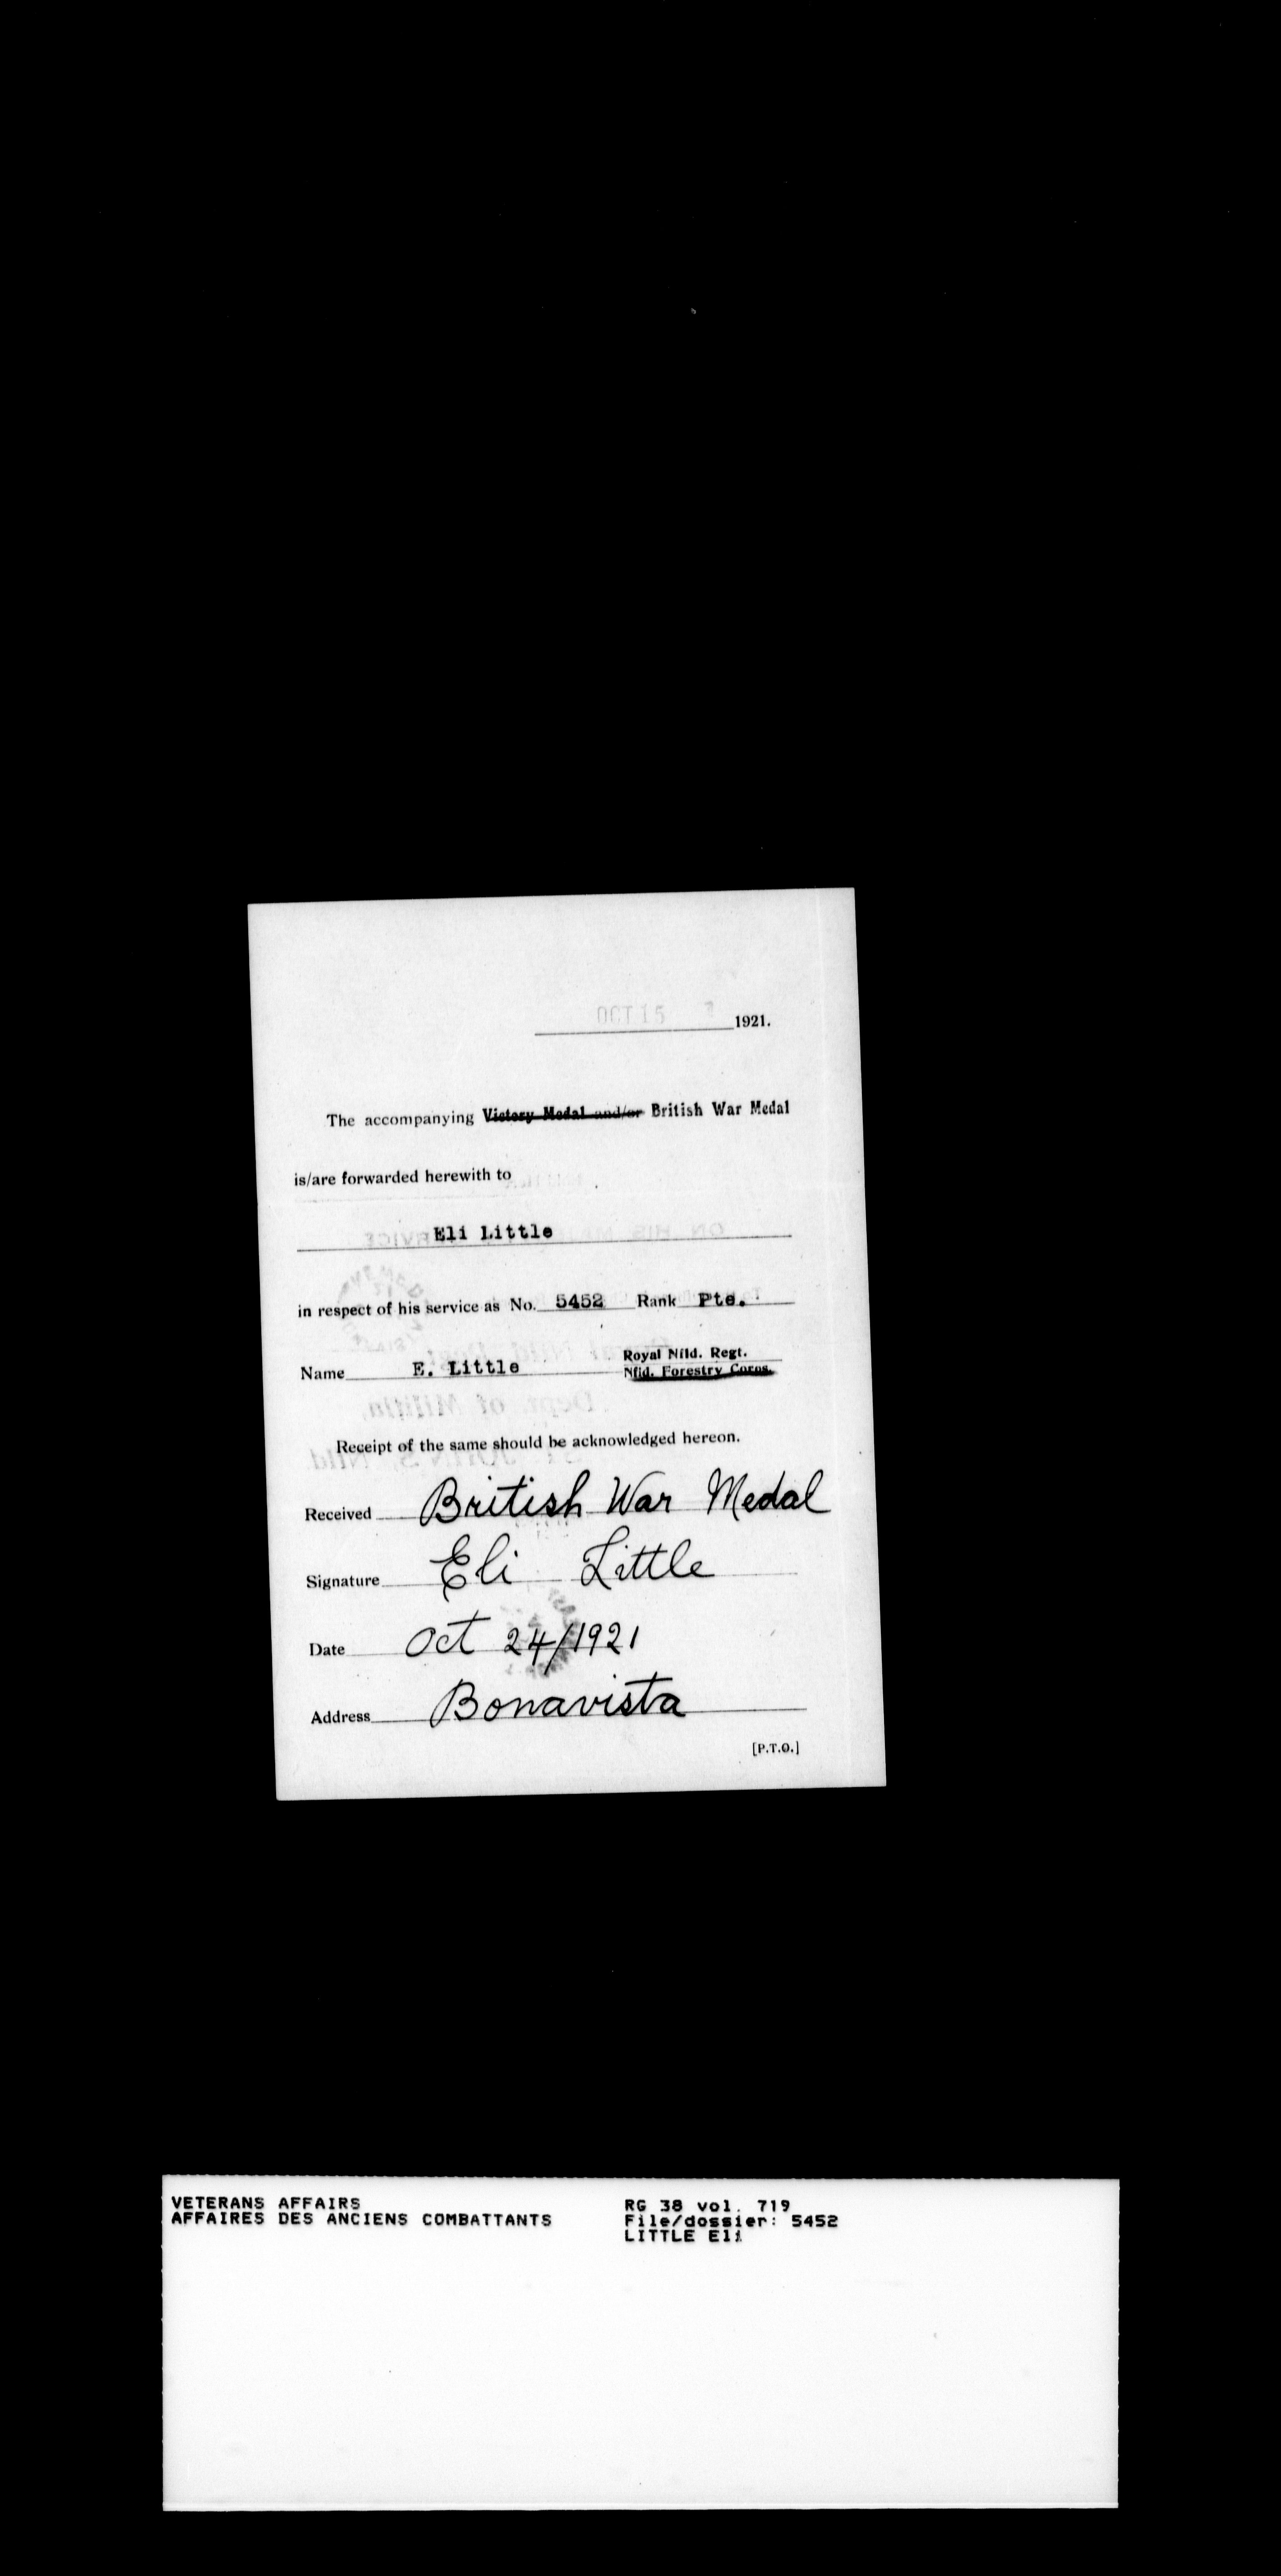 OCT 15 1921.
The accompanying Victory Medal and/or British War Medal
is/are forwarded herewith to
Eli Little
in respect of his service as No. 5452 Rank Pte.
Royal Nfld. Regt.
Name E. Little Nfld. Forestry Corps.
Receipt of the same should be acknowledged hereon.
Received British War Medal
Signature Eli Little
Date Oct 24/1921
Address Bonavista
[P.T.O.]
VETERANS AFFAIRS RG 38 vol. 719
AFFAIRES DES ANCIENS COMBATTANTS File/dossier: 5452
LITTLE Eli